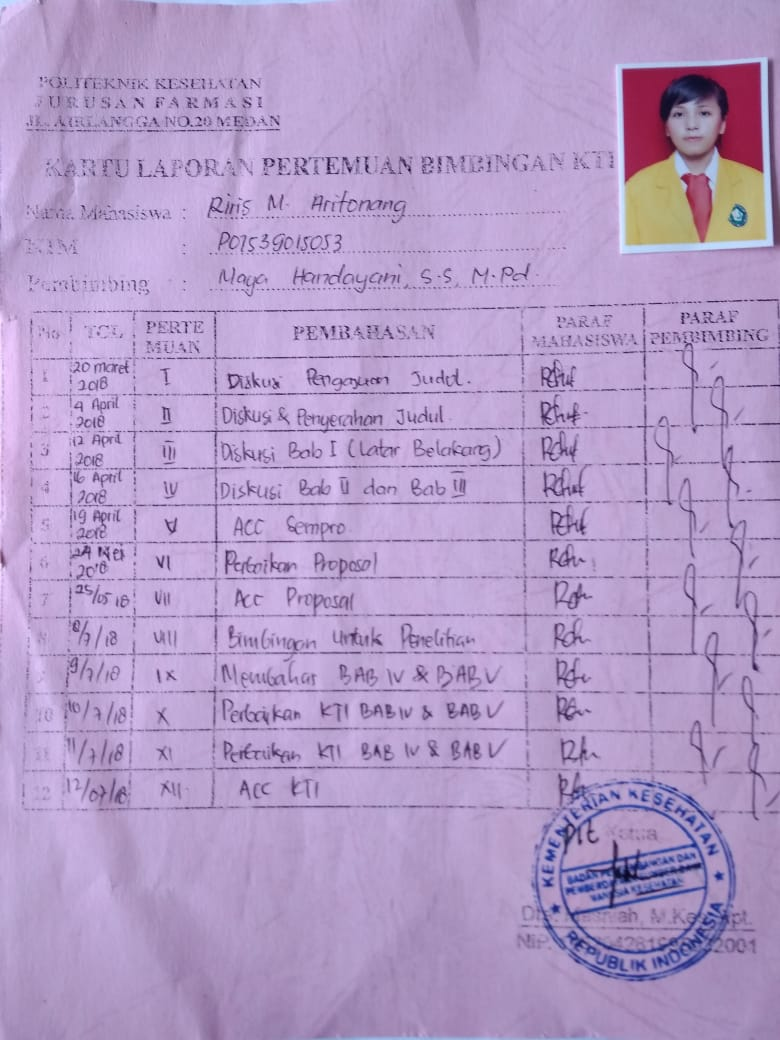 POLITEKNIK KESEHATAN
JURUSAN FARMASI
JL. AIRLANGGA NO.20 MEDAN
KARTU LAPORAN PERTEMUAN BIMBINGAN KTI
Nama Mahasiswa : Riris M. Aritonang
: P07539015053
Pembimbing : Maya Handayani, S.S, M.Pd.
No TGL PERTE MUAN PEMBAHASAN PARAF MAHASISWA PARAF PEMBIMBING
1 20 maret 2018 I Diskusi Pengajuan Judul.
2 4 April 2018 II Diskusi & Penyerahan Judul.
3 12 April 2018 III Diskusi Bab I (Latar Belakang)
4 16 April 2018 IV Diskusi Bab II dan Bab III
5 19 April 2018 V ACC Sempro
6 24 Mei 2018 VI Perbaikan Proposal
7 25/05 18 VII ACC Proposal
8 8/7/18 VIII Bimbingan Untuk Penelitian
9 9/7/18 IX Membahas BAB IV & BAB V
10 10/7/18 X Perbaikan KTI BAB IV & BAB V
11 11/7/18 XI Perbaikan KTI BAB IV & BAB V
12 12/07/18 XII ACC KTI
Plt Ketua
KEMENTERIAN KESEHATAN
BADAN DAN
MANUSIA KESEHATAN
REPUBLIK INDONESIA
M.Kes, Apt.
NIP.